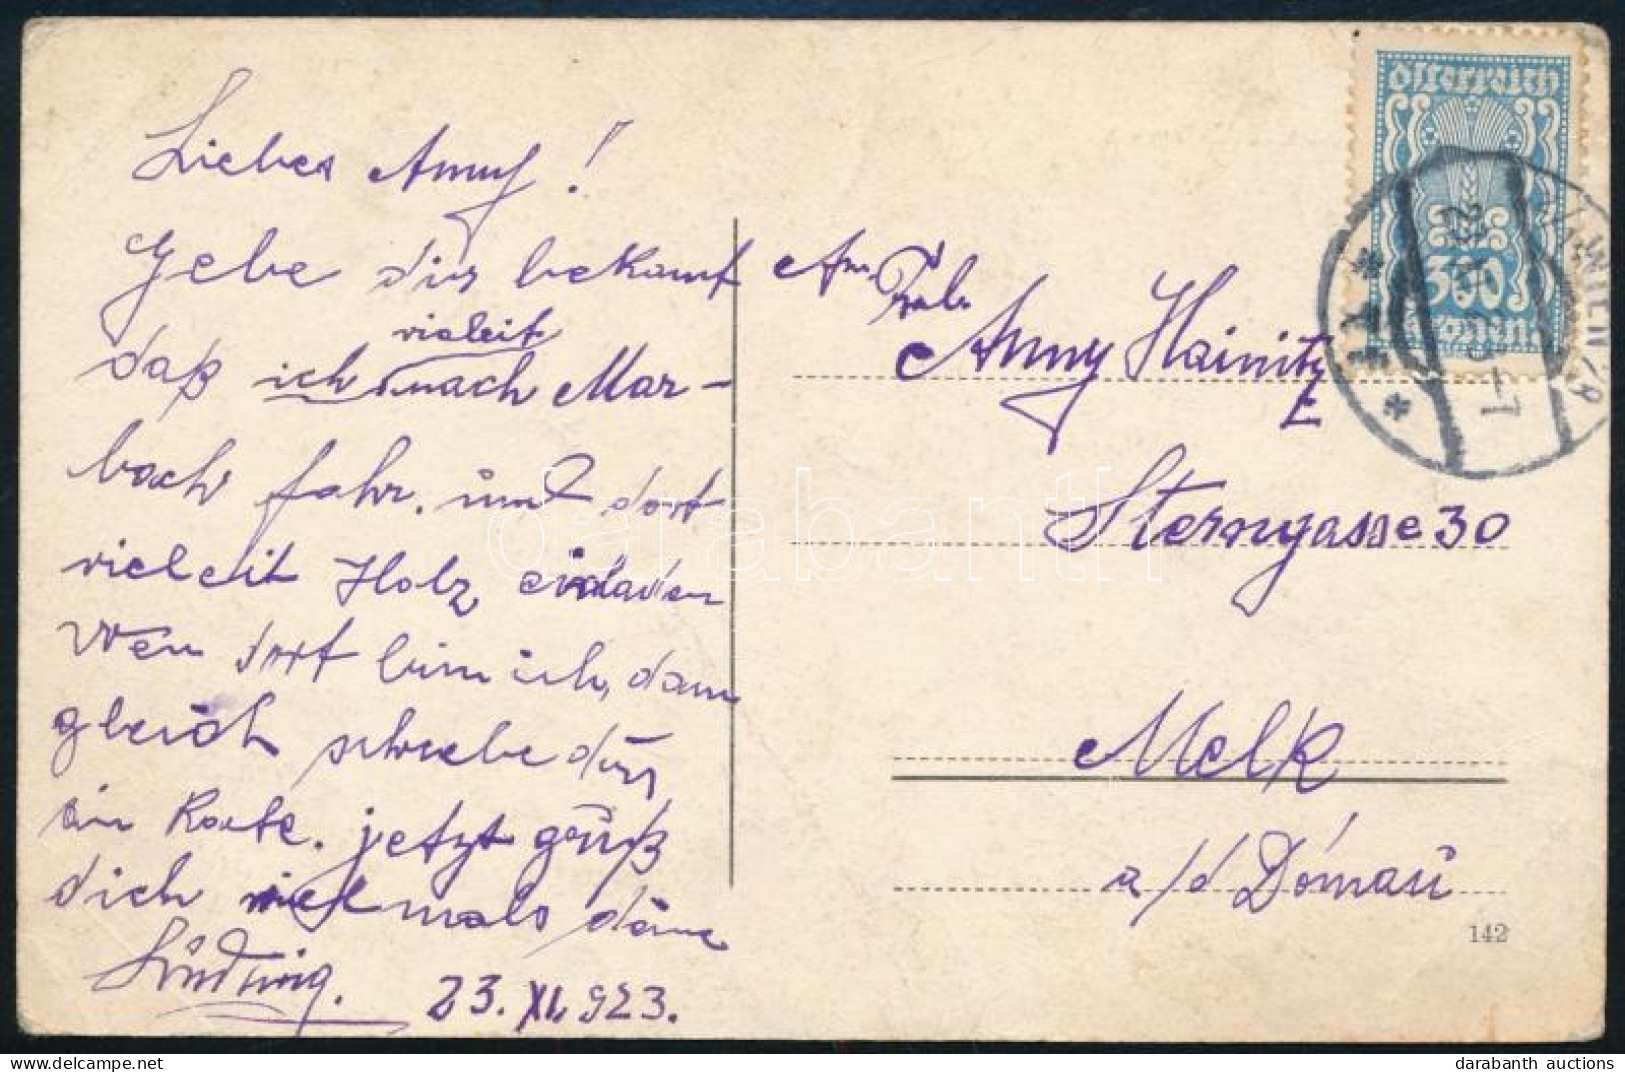 Liebes Anny!
Gebe dir bekannt
vieleit
daß ich nach Mar-
bach fahr. und dort
vieleit Holz einladen
Wen dort bin ich, dann
gleich schreibe dir
ein Karte. jetzt grüß
dich vielmals deine
Ludwig.
23. XI. 923.
An Frl.
Anny Hainitz
Sterngasse 30
Melk
a/d Donau
142
Österreich
360
Kronen
WIEN
darabanth
darabanth auctions